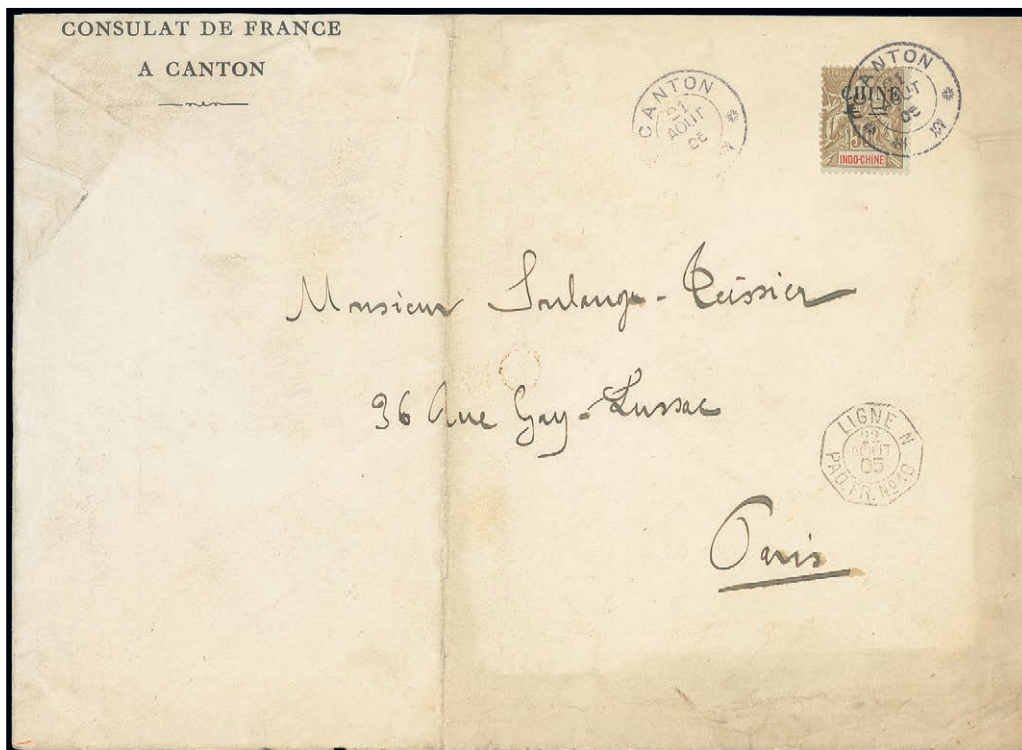 CONSULAT DE FRANCE
A CANTON
CANTON
21
AOUT
05
CANTON
AOUT
05
CHINE
50
INDO-CHINE
Monsieur Soulange-Teissier
36 Rue Gay-Lussac
LIGNE N
22
AOUT
05
PAQ. FR. No10
Paris